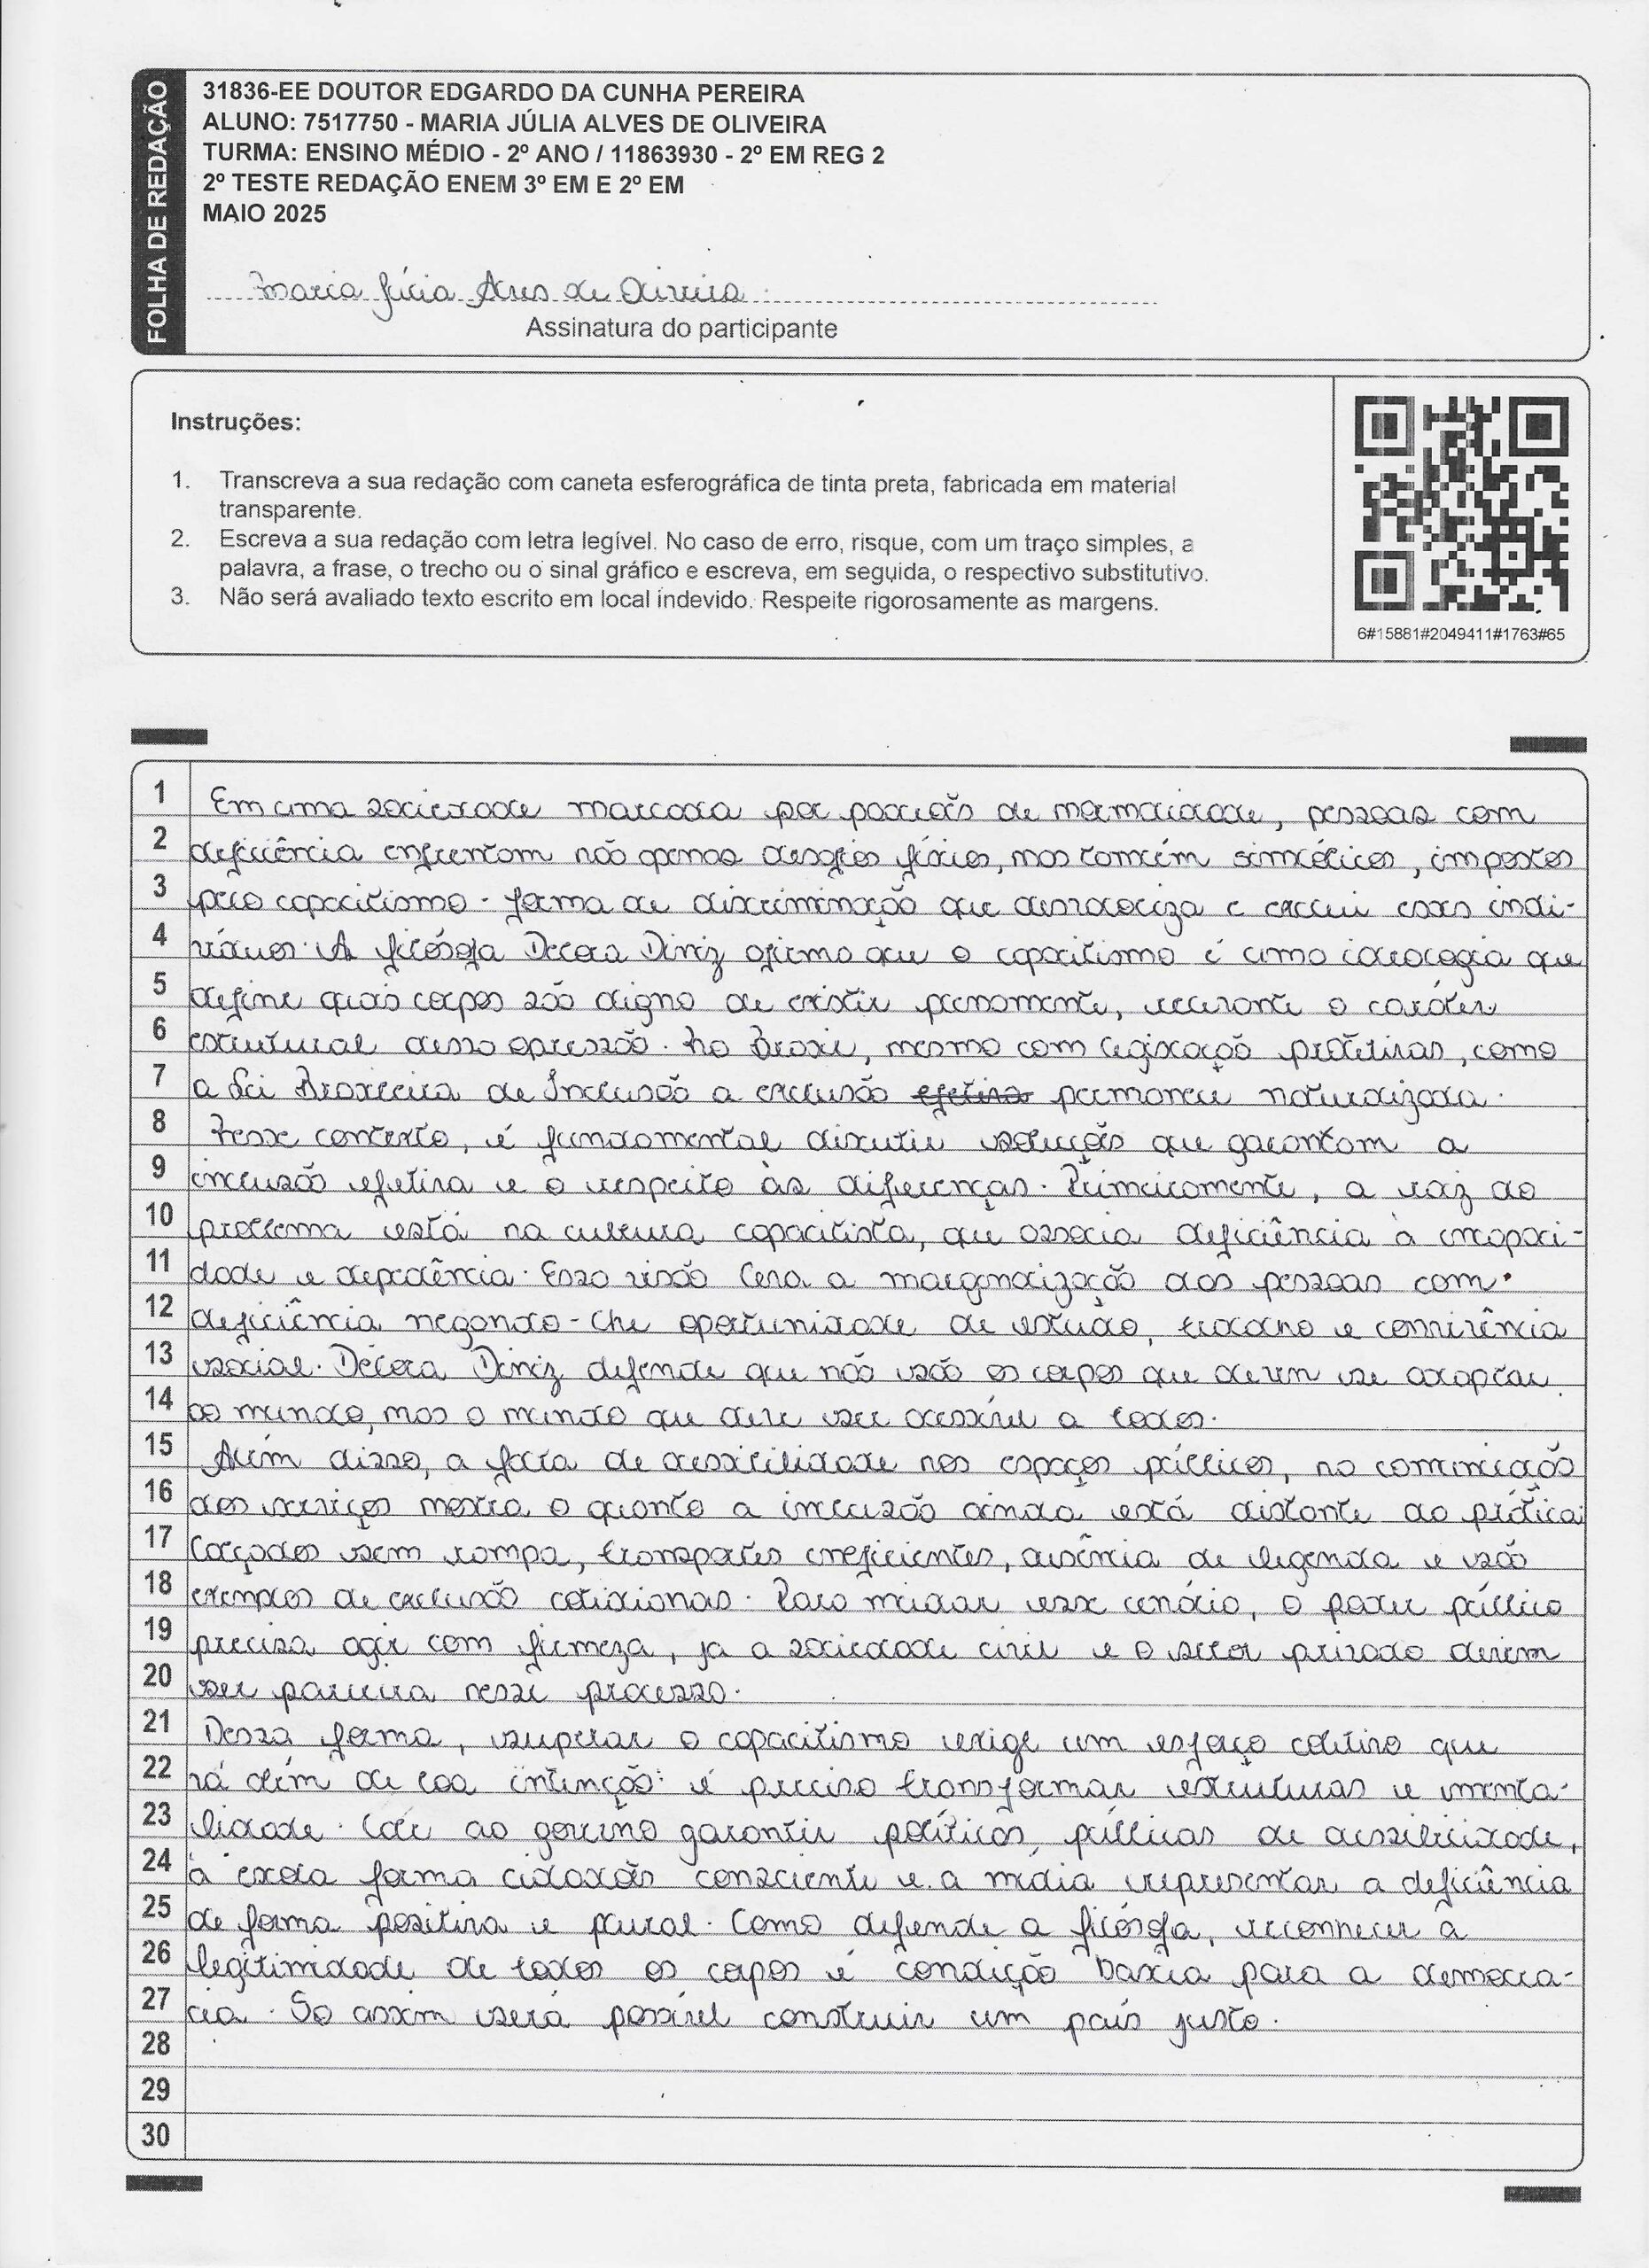 FOLHA DE REDAÇÃO
31836-EE DOUTOR EDGARDO DA CUNHA PEREIRA
ALUNO: 7517750 - MARIA JÚLIA ALVES DE OLIVEIRA
TURMA: ENSINO MÉDIO - 2º ANO / 11863930 - 2º EM REG 2
2º TESTE REDAÇÃO ENEM 3º EM E 2º EM
MAIO 2025
Maria Júlia Alves de Oliveira
Assinatura do participante
Instruções:
1. Transcreva a sua redação com caneta esferográfica de tinta preta, fabricada em material
transparente.
2. Escreva a sua redação com letra legível. No caso de erro, risque, com um traço simples, a
palavra, a frase, o trecho ou o sinal gráfico e escreva, em seguida, o respectivo substitutivo.
3. Não será avaliado texto escrito em local indevido. Respeite rigorosamente as margens.
6#15881#2049411#1763#65
1 Em uma sociedade marcada por padrões de normalidade, pessoas com
2 deficiência enfrentam não apenas desafios físicos, mas também simbólicos, impostos
3 pelo capacitismo - forma de discriminação que desvaloriza e exclui esses indi-
4 víduos. A filósofa Debora Diniz afirma que o capacitismo é uma ideologia que
5 define quais corpos são digno de existir plenamente, revelante o caráter
6 estrutural dessa opressão. No Brasil, mesmo com legislação protetivas, como
7 a Lei Brasileira de Inclusão a exclusão efetiva permanece naturalizada.
8 Nesse contexto, é fundamental discutir soluções que garantam a
9 inclusão efetiva e o respeito às diferenças. Primeiramente, a raiz do
10 problema está na cultura capacitista, que associa deficiência à incapaci-
11 dade e depedência. Essa visão leva a marginalização das pessoas com
12 deficiência negando-lhe oportunidade de estudo, trabalho e convivência
13 social. Débora Diniz defende que não são os corpos que devem se adaptar
14 ao mundo, mas o mundo que deve ser acessível a todos.
15 Além disso, a falta de acessibilidade nos espaços públicos, na comunicação
16 dos serviços mostra o quanto a inclusão ainda está distante da prática
17 Calçadas sem rampa, transportes ineficientes, ausência de legenda e são
18 exemplos de exclusão cotidianas. Para mudar esse cenário, o poder público
19 precisa agir com firmeza, ja a sociedade civil e o setor privado devem
20 ser parceira nesse processo.
21 Dessa forma, superar o capacitismo exige um esforço coletivo que
22 vá além de boa intenção: é preciso transformar estruturas e menta-
23 lidade. Cabe ao governo garantir políticas públicas de acessibilidade,
24 à escola forma cidadãos consciente e a mídia representar a deficiência
25 de forma positiva e plural. Como defende a filósofa, reconhecer a
26 legitimidade de todos os corpos é condição basica para a democra-
27 cia. So assim será possível construir um país justo.
28
29
30